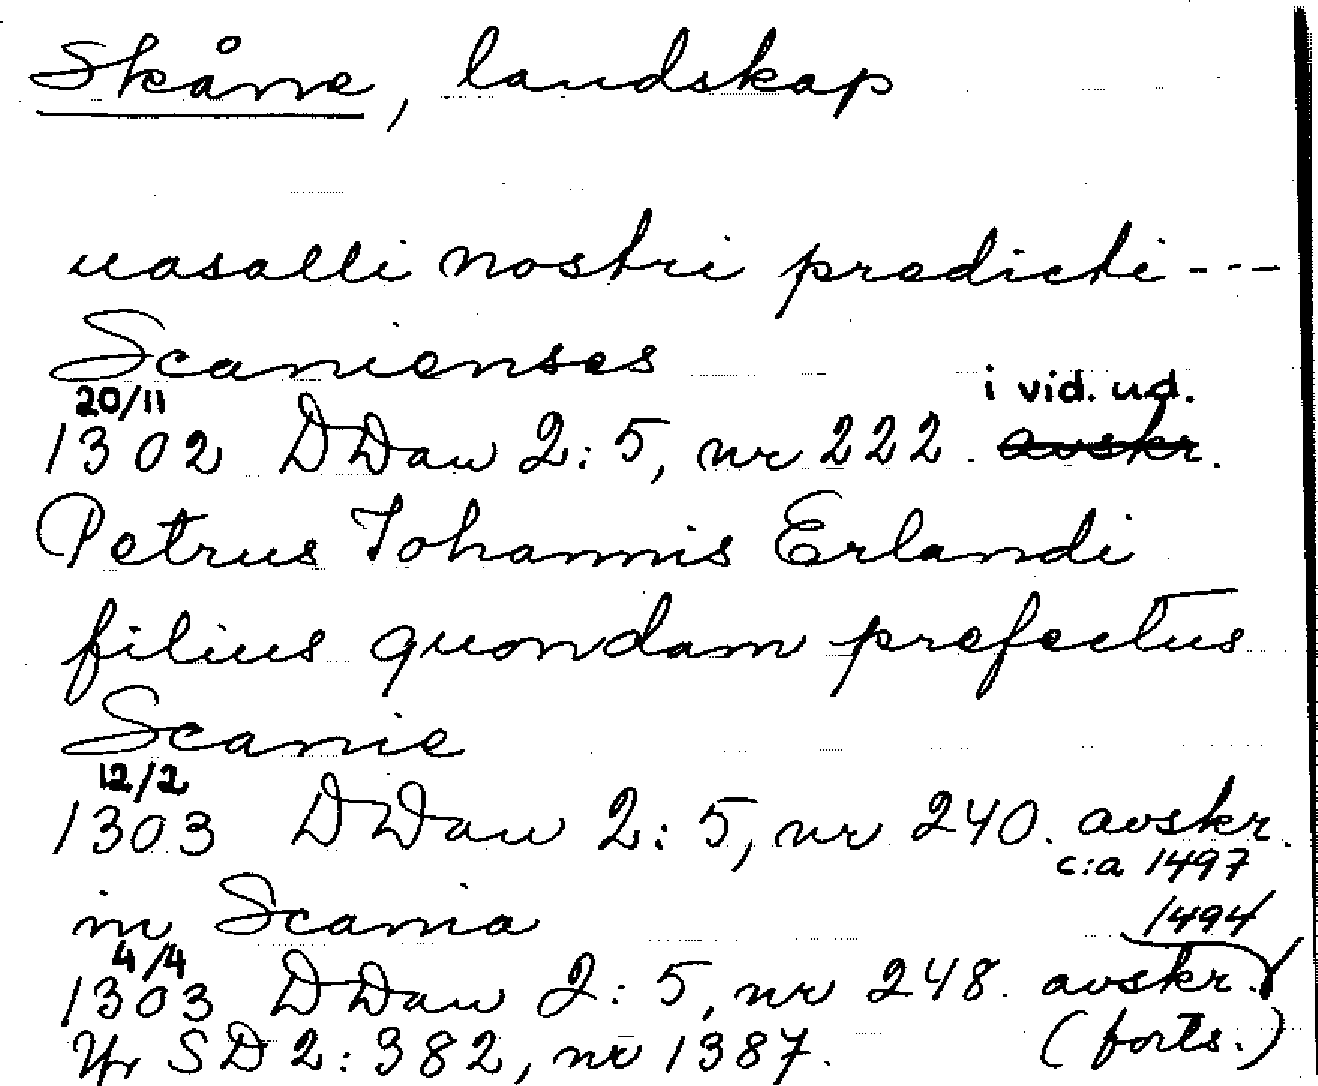 Skåne, landskap
uasalli nostri predicti ---
Scanienses
20/11 i vid. ud.
1302 DDan 2:5, nr 222. avskr.
Petrus Iohannis Erlandi
filius quondam prefectus
Scanie
12/2
1303 DDan 2:5, nr 240. avskr.
c:a 1497
in Scania 1494
4/4
1303 DDan 2:5, nr 248. avskr.
Jfr SD 2:382, nr 1387. (forts.)